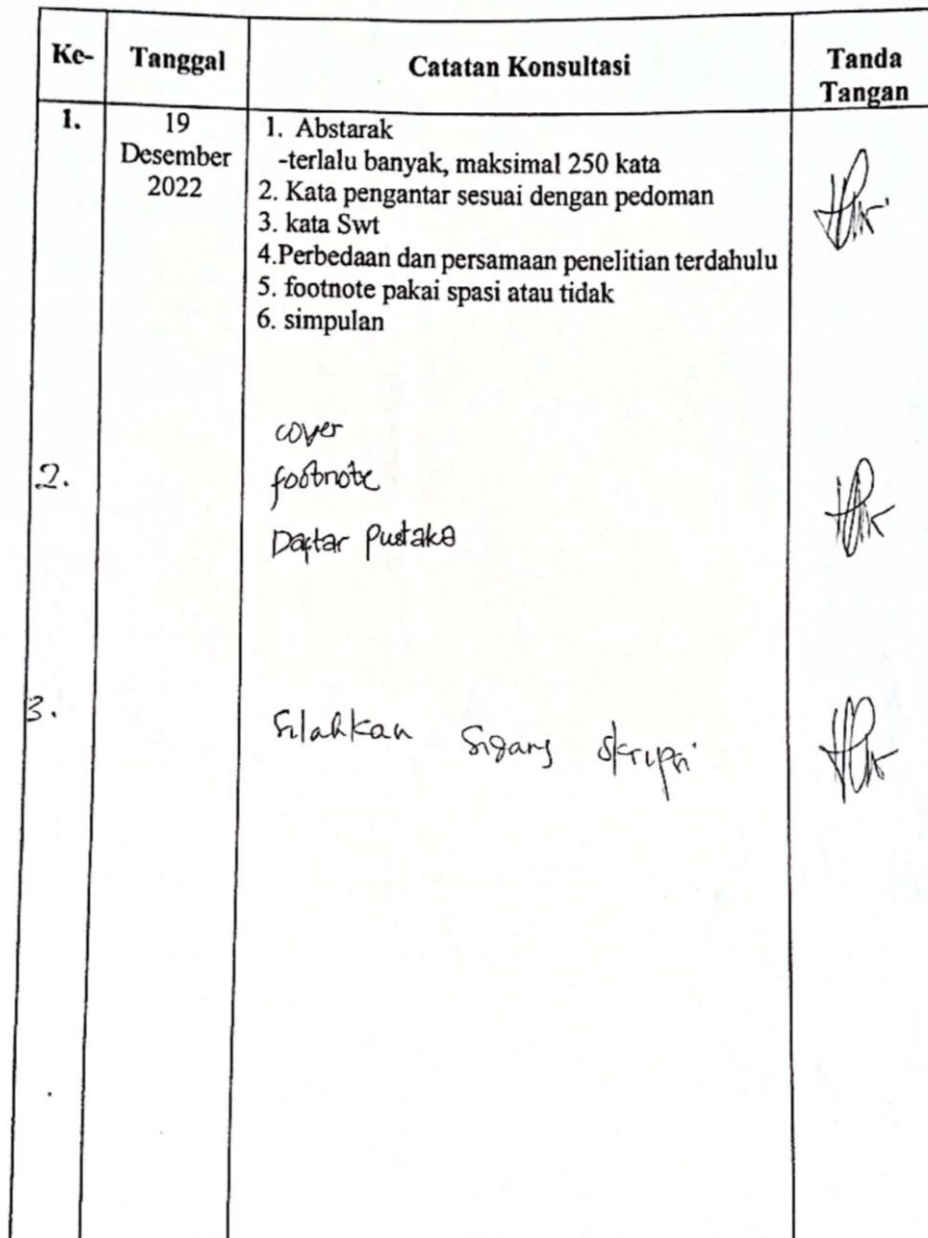 Ke- Tanggal Catatan Konsultasi Tanda
Tangan
1. 19 1. Abstarak
Desember -terlalu banyak, maksimal 250 kata
2022 2. Kata pengantar sesuai dengan pedoman
3. kata Swt
4.Perbedaan dan persamaan penelitian terdahulu
5. footnote pakai spasi atau tidak
6. simpulan
cover
2. footnote
Daftar Pustaka
3. Silahkan Sidang skripsi